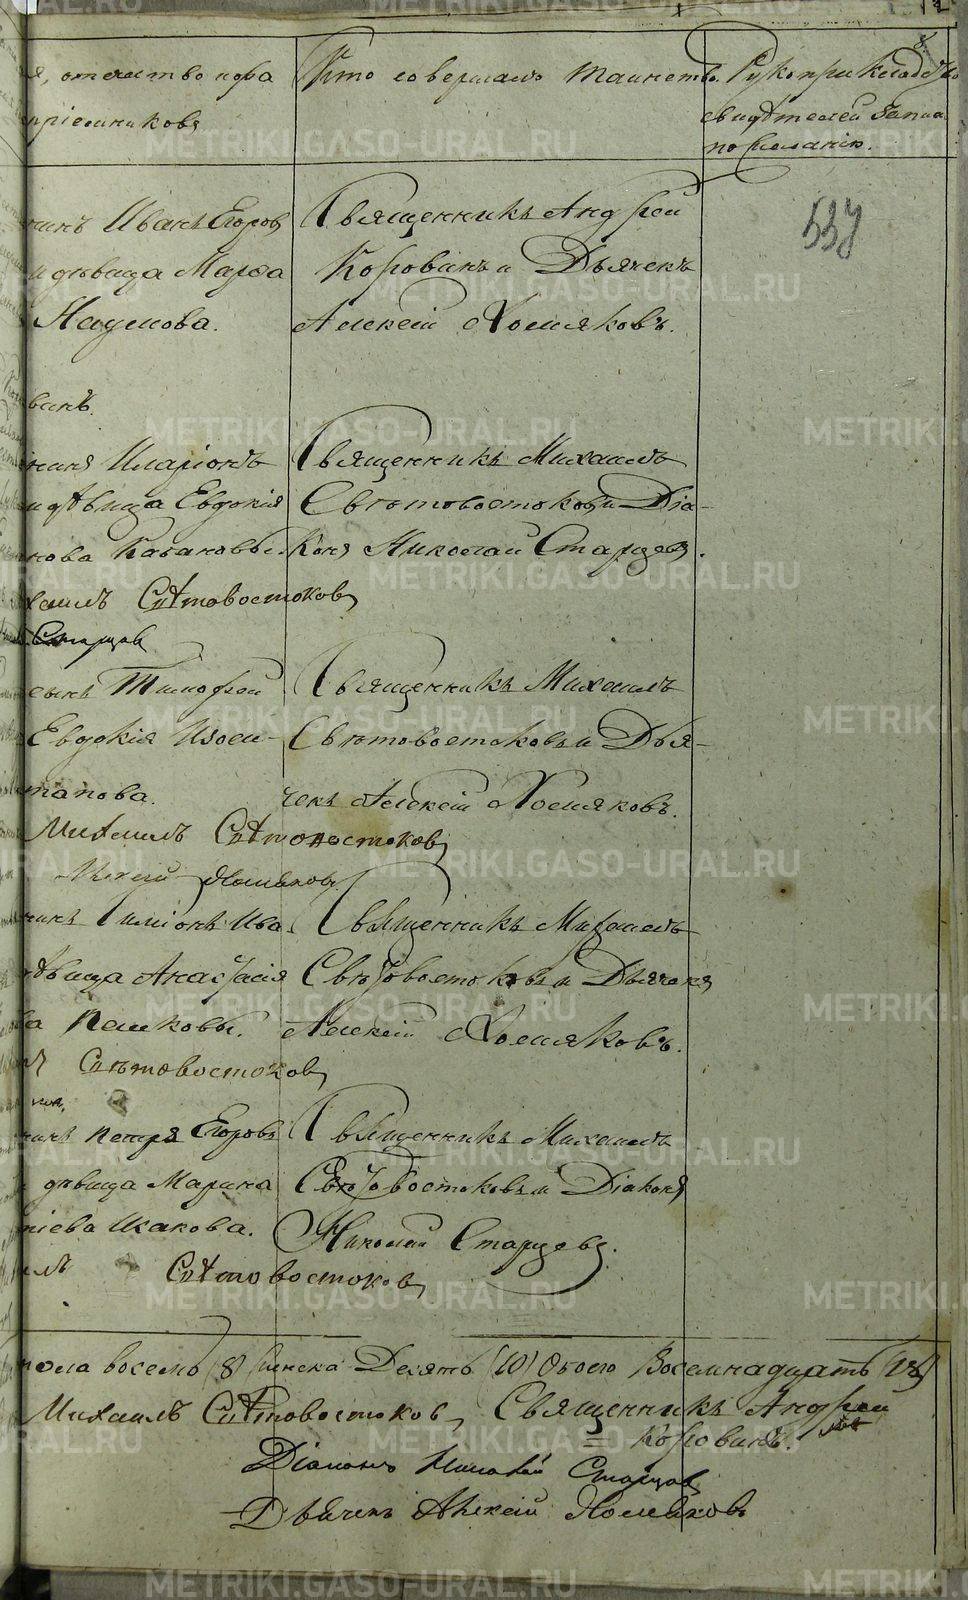 отечество
Кто совершалъ таинство.
Рукоприкладство
свидѣтелей записи
по желанію.
воспріемниковъ
Иванъ Егоровъ
и дѣвица Марѳа
Наумова.
Священникъ Андрей
Корованъ и Дьячекъ
Алексей Хомяковъ.
537
Иларіонъ
и дѣвица Евдокія
Кабановы.
Священникъ Михаилъ
Свѣтовостоковъ и Діа-
конъ Николай Старцевъ.
Михаилъ Свѣтовостоковъ
Старцовъ
сынъ Тимофей
Евдокія Изоси-
Священникъ Михаилъ
Свѣтовостоковъ и Дья-
чекъ Алексѣй Хомяковъ.
Михаилъ Свѣтовостоковъ
Алексѣй Хомяковъ
Симіонъ Ива
дѣвица Анастасія
Пешковы.
Священникъ Михаилъ
Свѣтовостоковъ и Дьячекъ
Алексѣй Хомяковъ.
Свѣтовостоковъ
Петръ Егоровъ
дѣвица Марина
Исакова.
Священникъ Михаилъ
Свѣтовостоковъ и Діаконъ
Николай Старцевъ.
Свѣтовостоковъ
пола восемь (8) женска Десять (10) Обоего Восемнадцать (18)
Михаилъ Свѣтовостоковъ Священникъ Андрей
Корованъ.
Діаконъ Николай Старцовъ
Дьячекъ Алексій Хомяковъ
METRIKI.GASO-URAL.RU